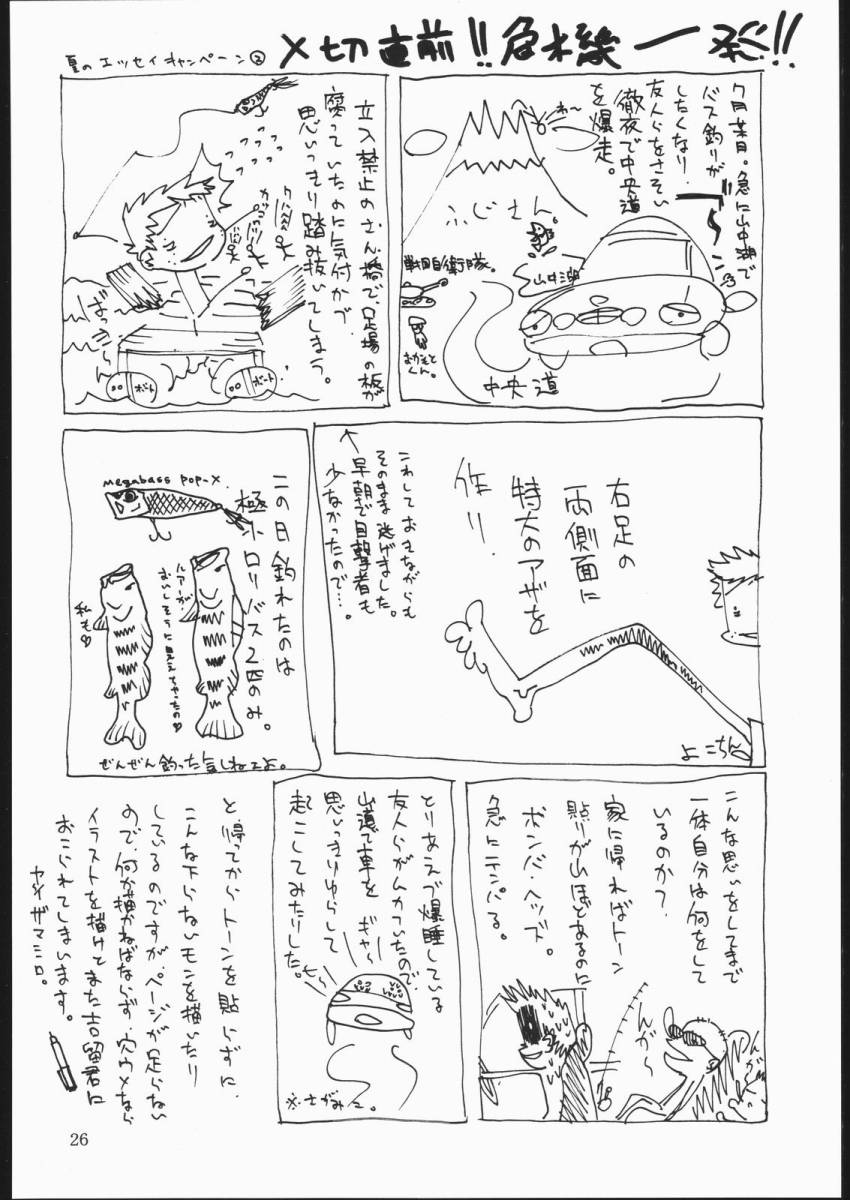 夏のエッセイキャンペーン②
〆切直前!!危機一発!!
7月某日。急に山中湖で
バス釣りが
したくなり、
友人らをさそい
徹夜で中央道
を爆走。
わ〜
ふじさん
山中湖
戦国自衛隊。
おかもと
くん。
中央道
立入禁止のさん橋で、足場の板が
腐っていたのに気付かづ
思いっきり踏み抜いてしまう。
ボート
ボート
右足の
両側面に
特大のアザを
作り、
これしておきながらも
そのまま逃げました。
早朝で目撃者も
少なかったので…。
よこちん
この日釣れたのは
極小ロリバス2匹のみ。
megabass pop-x.
ルアーが
おいしそうに見えちゃったの♡
私も♡
ぜんぜん釣った気しねーよ。
こんな思いをしてまで
一体自分は何をして
いるのか?
家に帰ればトーン
貼りが山ほどあるのに
ボンバヘッズ。
急にテンパる。
んが〜
んが
とりあえづ爆睡している
友人らがムカついたので
山道で車を
思いっきりゆらして
起こしてみたりした。
ギャー
※さがみこ。
と、帰ってからトーンを貼らずに、
こんな下らないモンを描いたり
しているのですが、ページが足らない
ので、何か描かねばならず、穴ウメなら
イラストを描けとまた吉留君に
おこられてしまいます。
ヤノザマミロ。
26